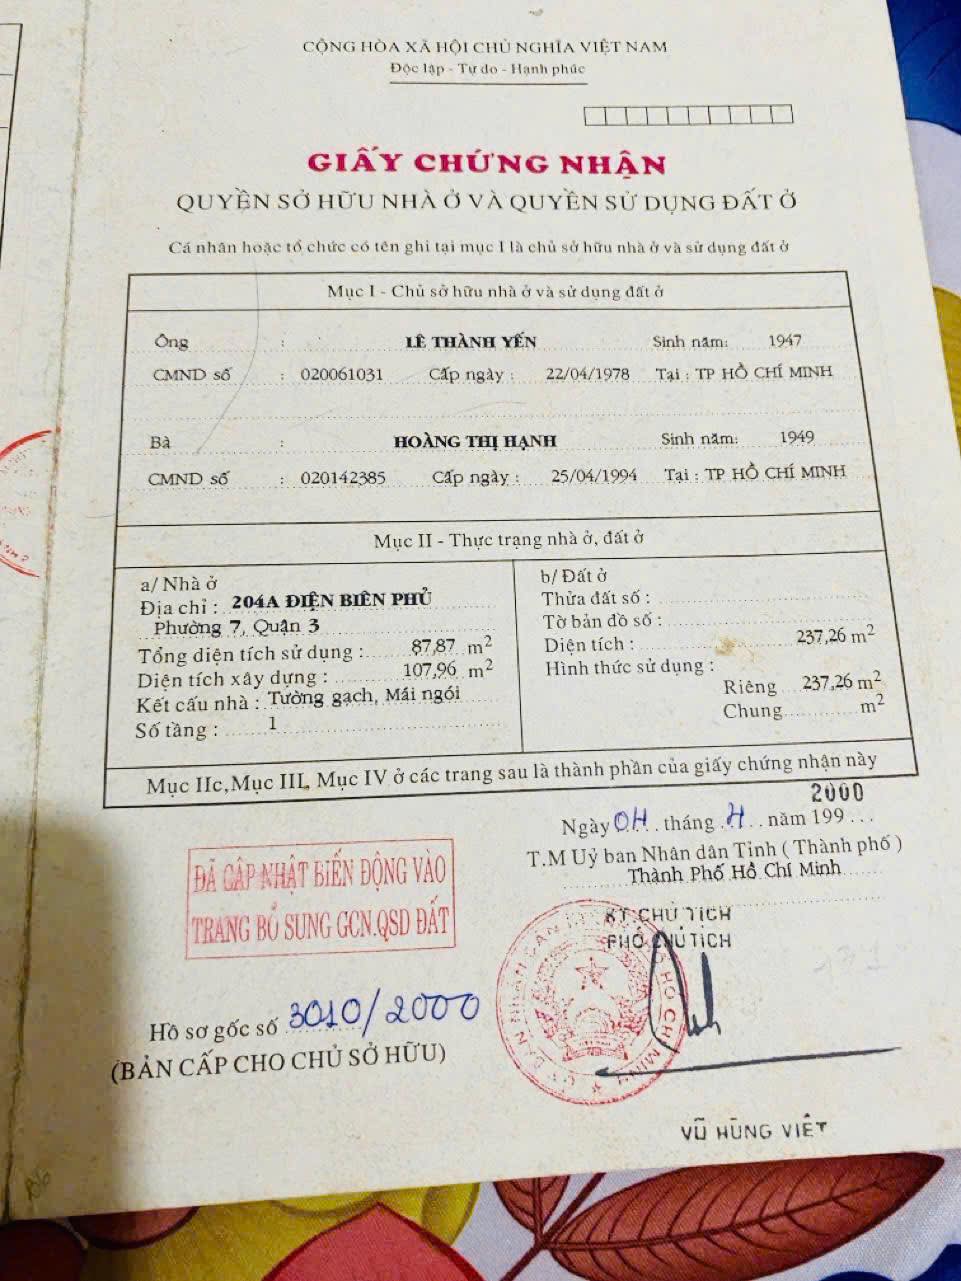 CỘNG HÒA XÃ HỘI CHỦ NGHĨA VIỆT NAM
Độc lập - Tự do - Hạnh phúc
GIẤY CHỨNG NHẬN
QUYỀN SỞ HỮU NHÀ Ở VÀ QUYỀN SỬ DỤNG ĐẤT Ở
Cá nhân hoặc tổ chức có tên ghi tại mục I là chủ sở hữu nhà ở và sử dụng đất ở
Mục I - Chủ sở hữu nhà ở và sử dụng đất ở
Ông : LÊ THÀNH YẾN Sinh năm: 1947
CMND số : 020061031 Cấp ngày : 22/04/1978 Tại : TP HỒ CHÍ MINH
Bà : HOÀNG THỊ HẠNH Sinh năm: 1949
CMND số : 020142385 Cấp ngày : 25/04/1994 Tại : TP HỒ CHÍ MINH
Mục II - Thực trạng nhà ở, đất ở
a/ Nhà ở
Địa chỉ : 204A ĐIỆN BIÊN PHỦ
Phường 7, Quận 3
Tổng diện tích sử dụng : 87,87 m2
Diện tích xây dựng : 107,96 m2
Kết cấu nhà : Tường gạch, Mái ngói
Số tầng : 1
b/ Đất ở
Thửa đất số :
Tờ bản đồ số :
Diện tích : 237,26 m2
Hình thức sử dụng :
Riêng 237,26 m2
Chung m2
Mục IIc, Mục III, Mục IV ở các trang sau là thành phần của giấy chứng nhận này
2000
Ngày 04 tháng 4 năm 199
T.M Uỷ ban Nhân dân Tỉnh ( Thành phố )
Thành Phố Hồ Chí Minh
KT.CHỦ TỊCH
PHÓ CHỦ TỊCH
ĐÃ CẬP NHẬT BIẾN ĐỘNG VÀO
TRANG BỔ SUNG GCN.QSD ĐẤT
Hồ sơ gốc số 3010/2000
(BẢN CẤP CHO CHỦ SỞ HỮU)
VŨ HÙNG VIỆT